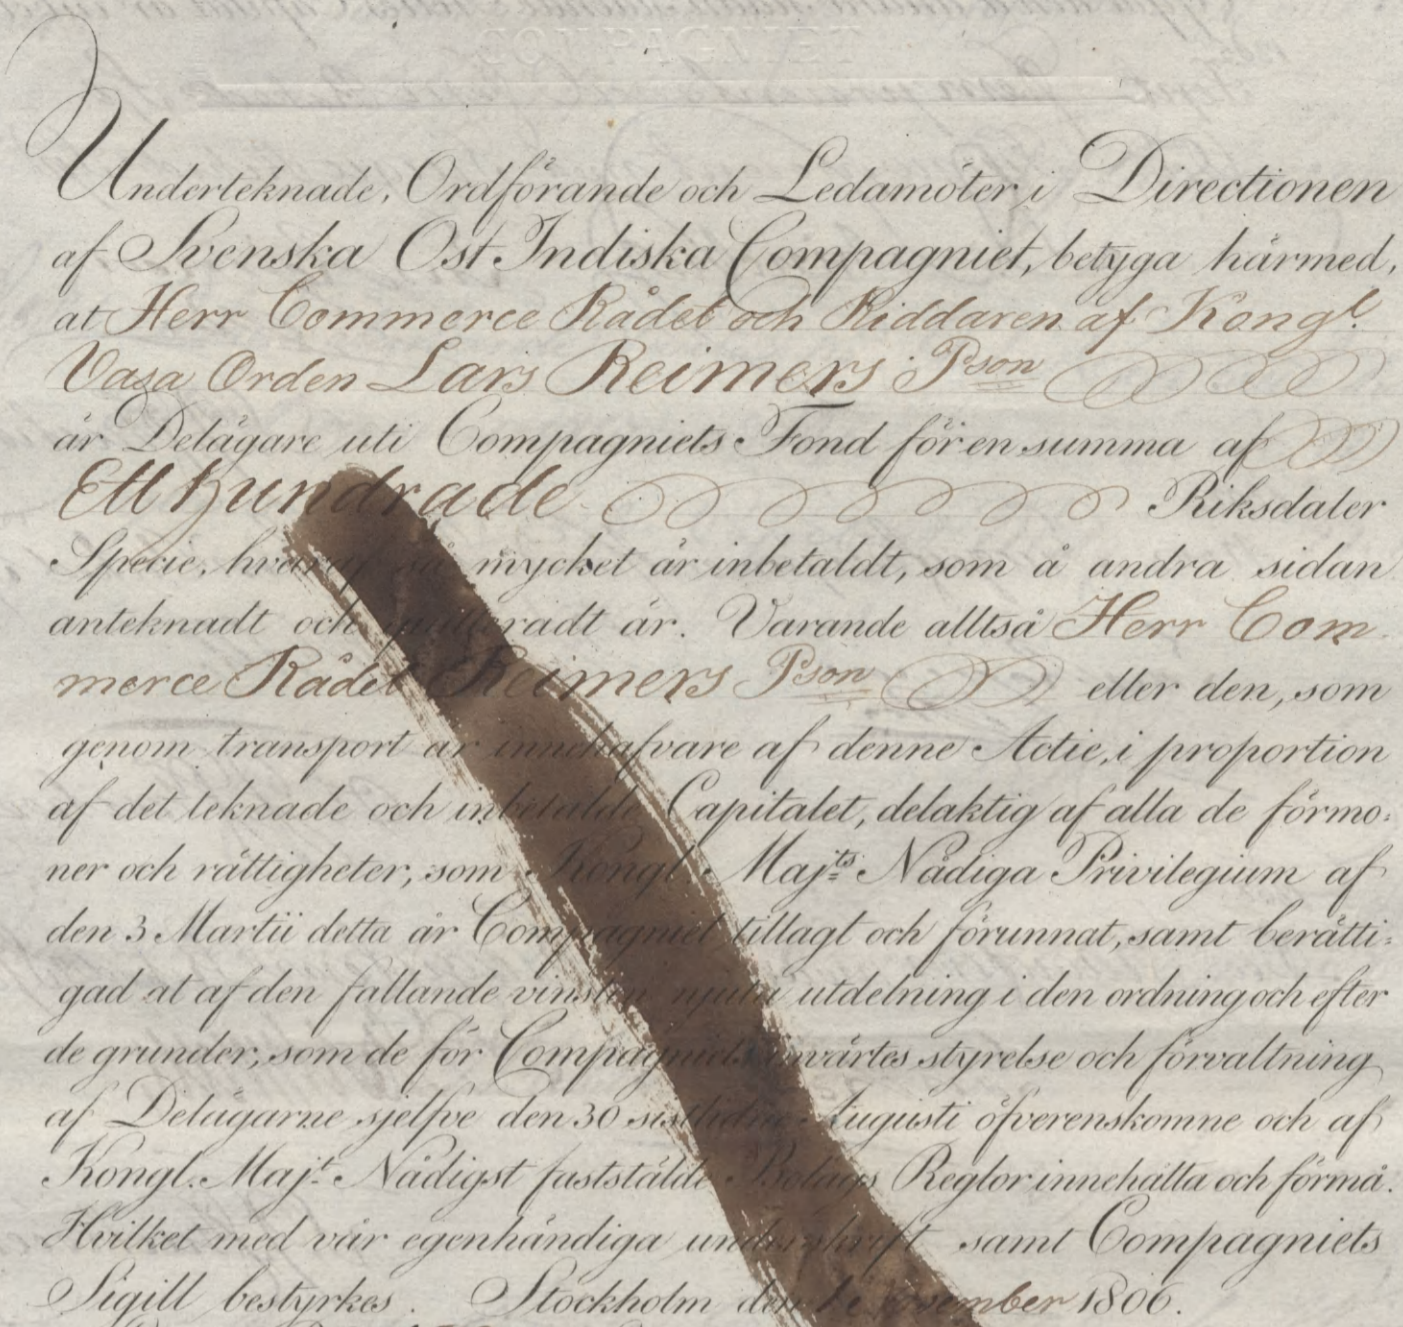 Underteknade, Ordförande och Ledamöter i Directionen
af Svenska Ost Indiska Compagniet, betyga härmed,
at Herr Commerce Rådet och Riddaren af Kongl.
Vasa Orden Lars Reimers Pson
är Delägare uti Compagniets Fond för en summa af
Ett hundrade Riksdaler
Specie, hvaraf så mycket är inbetaldt, som å andra sidan
anteknadt och qvitteradt är. Varande alltså Herr Com-
merce Rådet Reimers Pson eller den, som
genom transport är innehafvare af denne Actie, i proportion
af det teknade och inbetalde Capitalet, delaktig af alla de förmo-
ner och rättigheter, som Kongl. Majts Nådiga Privilegium af
den 3 Martii detta år Compagniet tillagt och förunnat, samt berätti-
gad at af den fallande vinsten njuta utdelning i den ordning och efter
de grunder, som de för Compagniets invärtes styrelse och förvaltning
af Delägarne sjelfve den 30 sistledne Augusti öfverenskomne och af
Kongl. Majt Nådigst faststälde Bolags Reglor innehålla och förmå.
Hvilket med vår egenhändiga underskrift samt Compagniets
Sigill bestyrkes. Stockholm den November 1806.